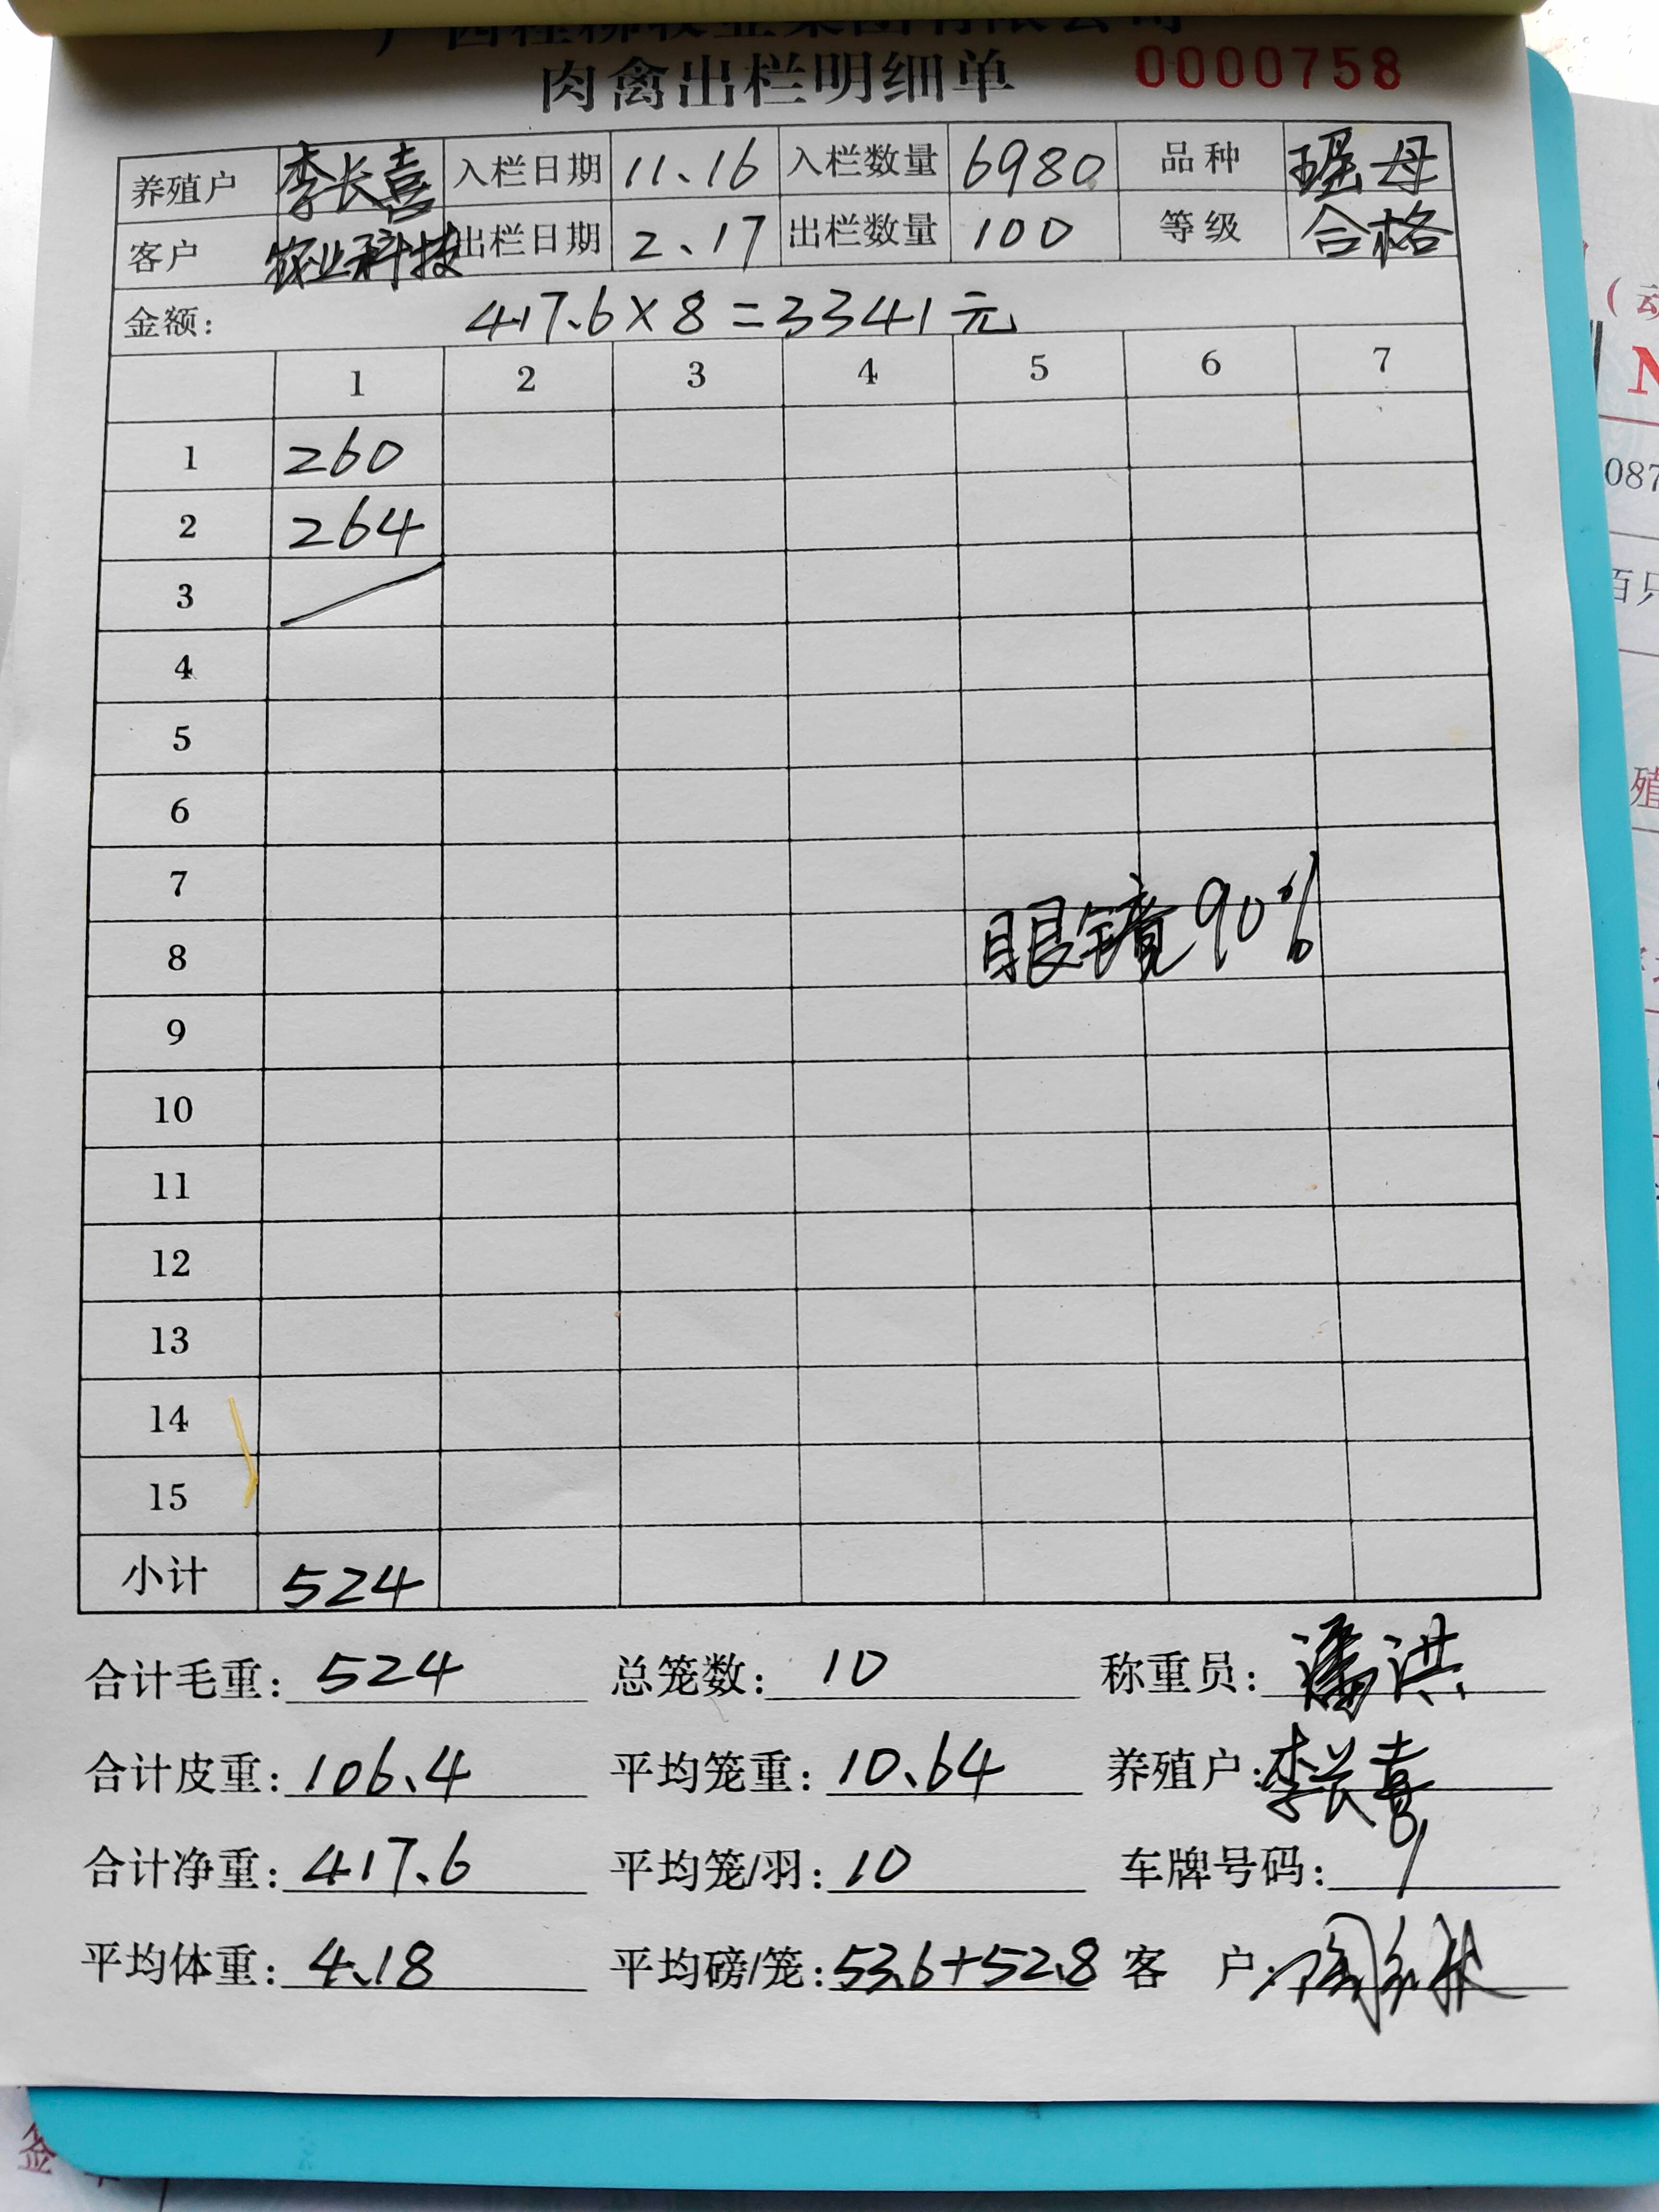 广西桂柳牧业集团有限公司
肉禽出栏明细单 0000758
养殖户 李长喜 入栏日期 11.16 入栏数量 6980 品种 瑶母
客户 农业科技 出栏日期 2.17 出栏数量 100 等级 合格
金额: 417.6×8=3341元
1 2 3 4 5 6 7
1 260
2 264
3
4
5
6
7
8 眼镜90%
9
10
11
12
13
14
15
小计 524
合计毛重: 524 总笼数: 10 称重员: 潘洪
合计皮重: 106.4 平均笼重: 10.64 养殖户: 李长喜
合计净重: 417.6 平均笼/羽: 10 车牌号码: /
平均体重: 4.18 平均磅/笼: 53.6+52.8 客户:
(动
N
087
百只
殖
签